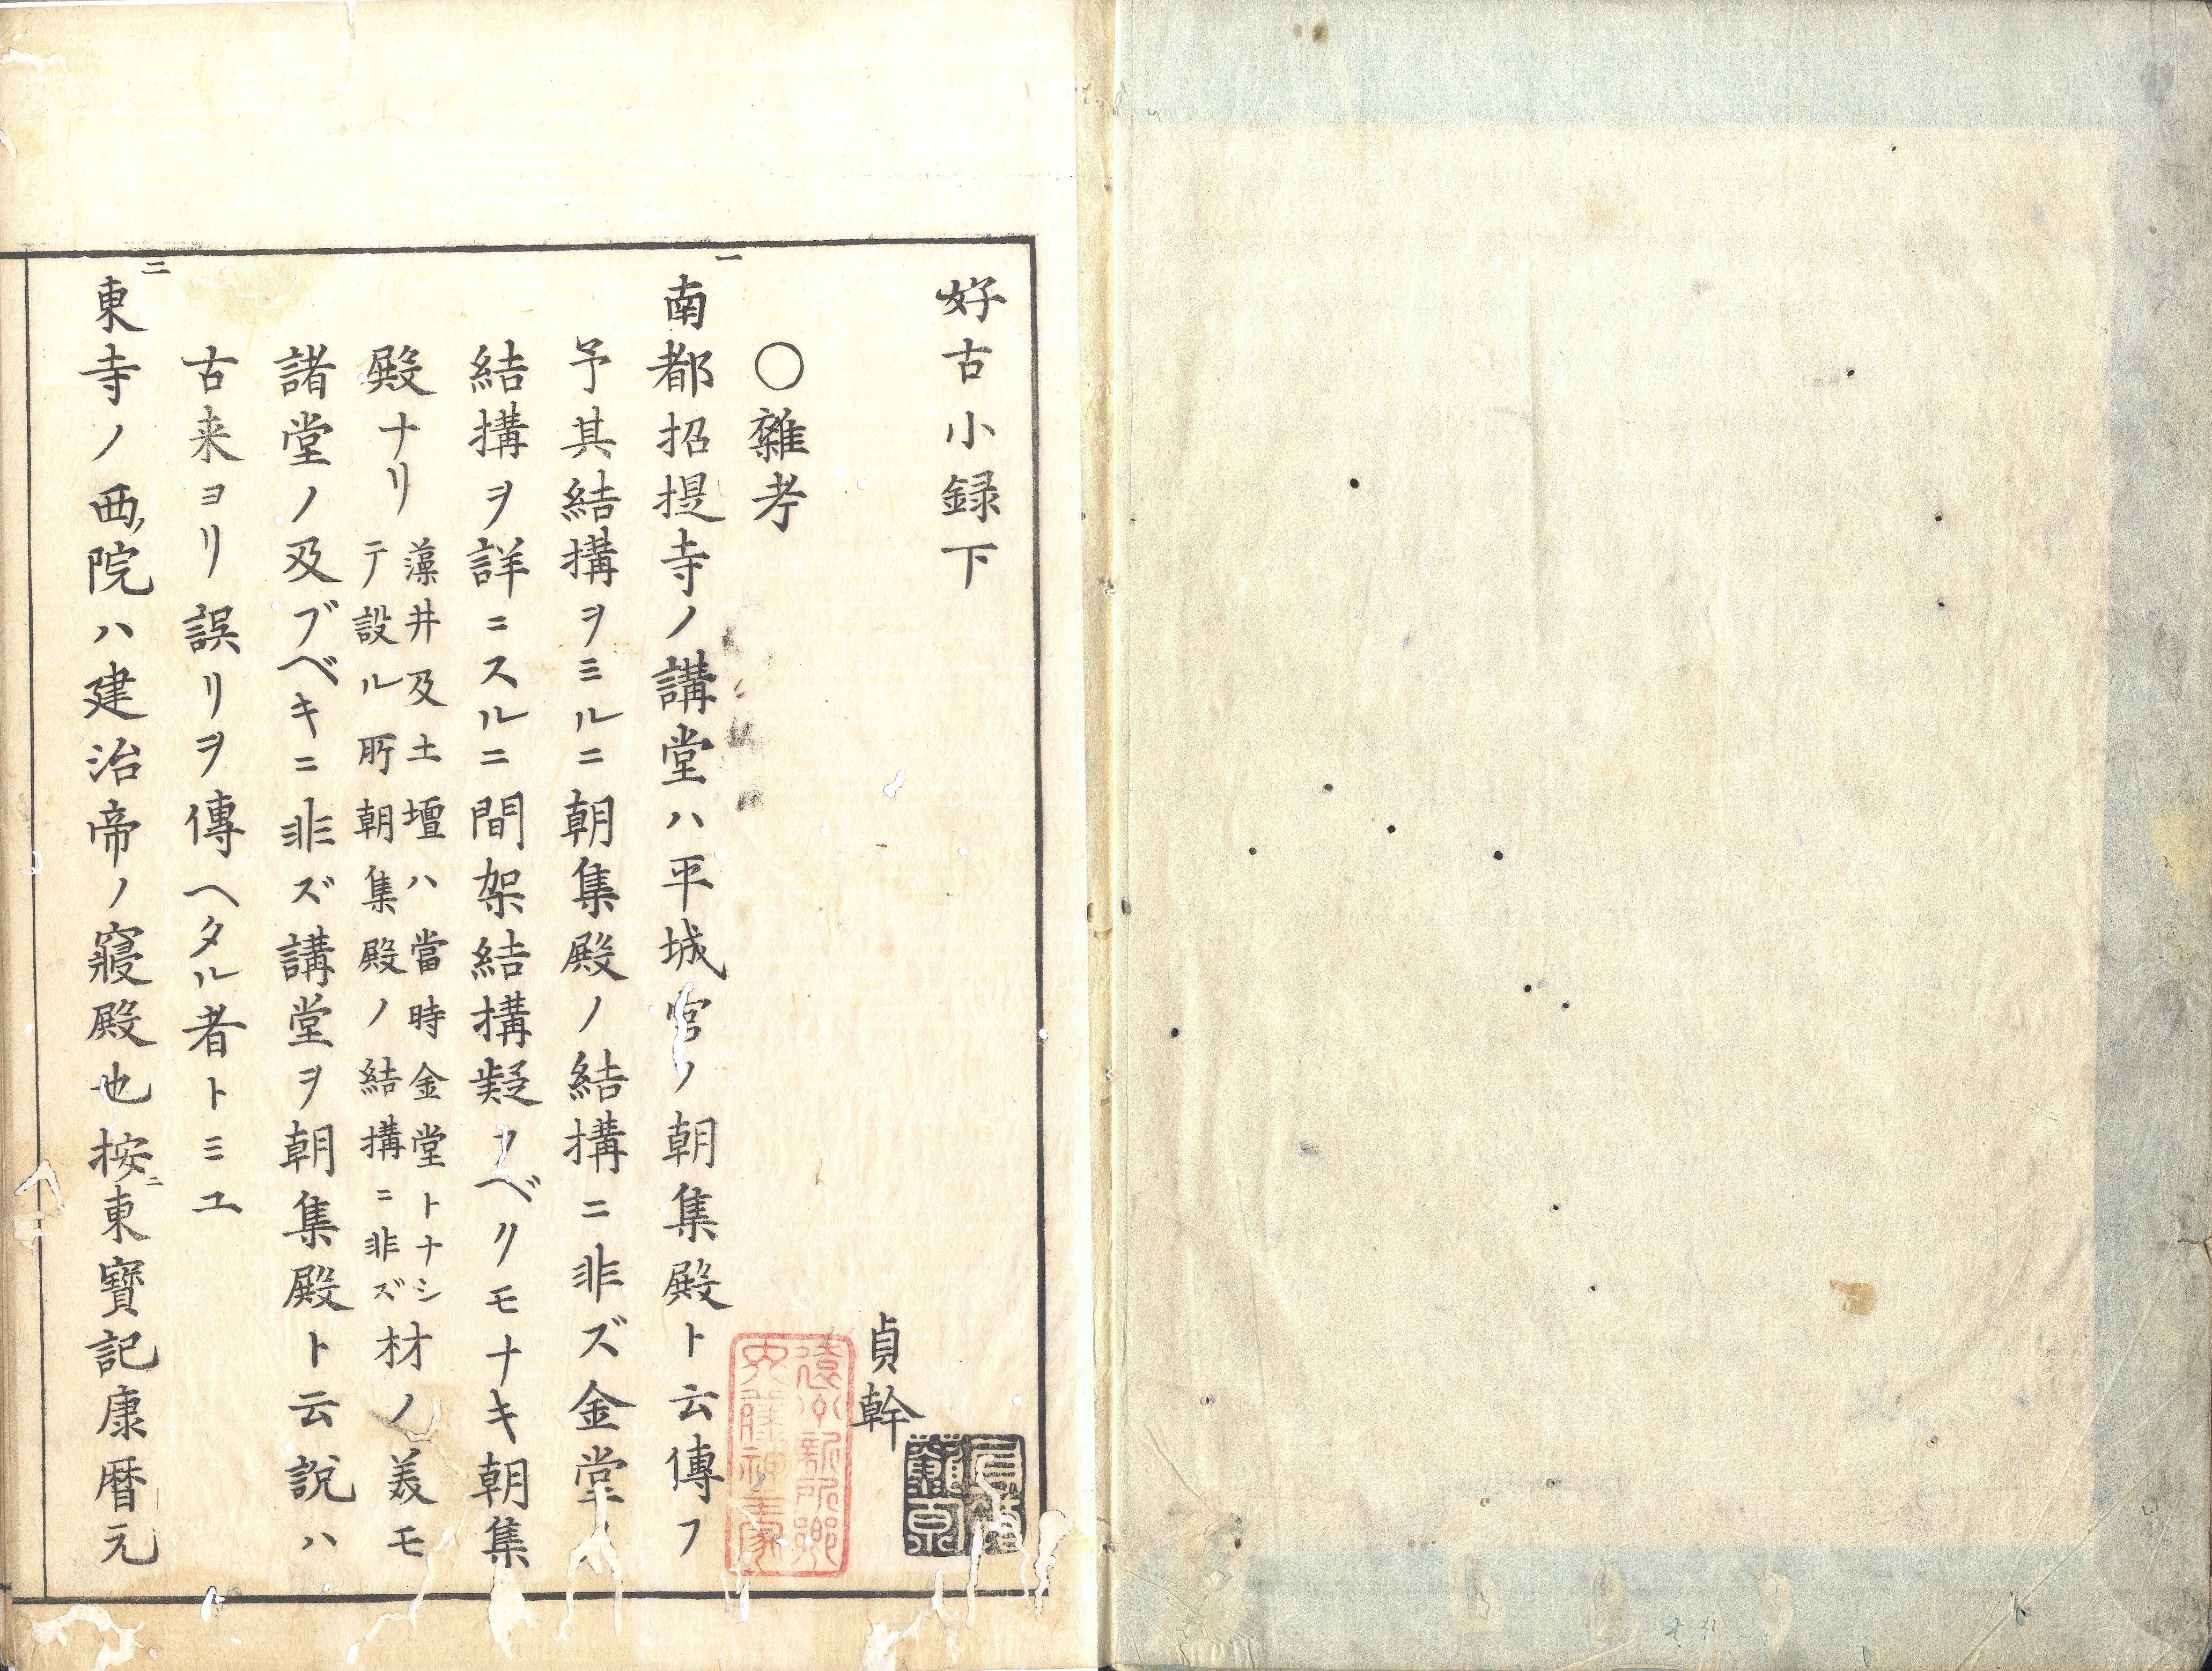 好古小録下
貞幹
○雜考
一
南都招提寺ノ講堂ハ平城宮ノ朝集殿ト云傳フ
予其結搆ヲミルニ朝集殿ノ結搆ニ非ズ金堂ノ
結搆ヲ詳ニスルニ間架結搆疑フベクモナキ朝集
殿ナリ
藻井及土壇ハ當時金堂トナシ
テ設ル所朝集殿ノ結搆ニ非ズ
材ノ美モ
諸堂ノ及ブベキニ非ズ講堂ヲ朝集殿ト云説ハ
古来ヨリ誤リヲ傳ヘタル者トミユ
二
東寺ノ西院ハ建治帝ノ寢殿也按ニ東寳記康暦元